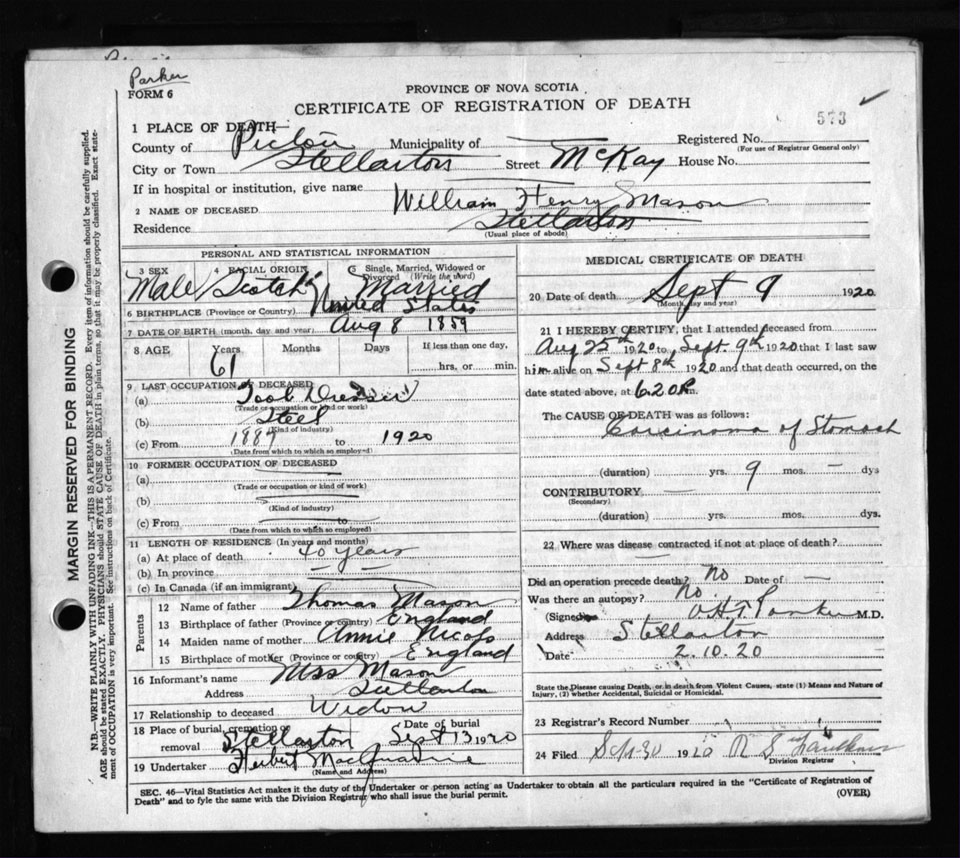 Parker
FORM 6
PROVINCE OF NOVA SCOTIA
CERTIFICATE OF REGISTRATION OF DEATH
573
1 PLACE OF DEATH—
County of Pictou Municipality of Registered No.
(For use of Registrar General only)
City or Town Stellarton Street McKay House No.
If in hospital or institution, give name
2 NAME OF DECEASED William Henry Mason
Residence Stellarton
(Usual place of abode)
PERSONAL AND STATISTICAL INFORMATION
3 SEX 4 RACIAL ORIGIN 5 Single, Married, Widowed or Divorced (Write the word)
Male Scotch Married
6 BIRTHPLACE (Province or Country) United States
7 DATE OF BIRTH (month, day and year) Aug 8 1859
8 AGE Years Months Days If less than one day,
61 hrs. or min.
9 LAST OCCUPATION OF DECEASED
(a) Tool Dresser
(Trade or occupation or kind of work)
(b) Steel
(Kind of industry)
(c) From 1889 to 1920
(Date from which to which so employed)
10 FORMER OCCUPATION OF DECEASED
(a)
(Trade or occupation or kind of work)
(b)
(Kind of industry)
(c) From to
(Date from which to which so employed)
11 LENGTH OF RESIDENCE (In years and months)
(a) At place of death 40 years
(b) In province — —
(c) In Canada (if an immigrant)
Parents
12 Name of father Thomas Mason
13 Birthplace of father (Province or country) England
14 Maiden name of mother Annie
15 Birthplace of mother (Province or country) England
16 Informant's name Mrs Mason
Address Stellarton
17 Relationship to deceased Widow
18 Place of burial, cremation or removal Stellarton Date of burial Sept 13 1920
19 Undertaker Herbert MacQuarrie
(Name and Address)
MEDICAL CERTIFICATE OF DEATH
20 Date of death Sept 9 1920
(Month, day and year)
21 I HEREBY CERTIFY, that I attended deceased from
Aug 25th 1920 to Sept. 9th 1920 that I last saw
him alive on Sept 8th 1920 and that death occurred, on
date stated above, at 6.20 P m.
The CAUSE OF DEATH was as follows:
Carcinoma of Stomach
(duration) yrs. 9 mos. — dys
CONTRIBUTORY —
(Secondary)
(duration) yrs. mos. dys.
22 Where was disease contracted if not at place of death?
—
Did an operation precede death? No Date of —
Was there an autopsy? No.
(Signed) Parker M.D.
Address Stellarton
Date 2.10.20
State the Disease causing Death, or in death from Violent Causes, state (1) Means and Nature of
Injury, (2) whether Accidental, Suicidal or Homicidal.
23 Registrar's Record Number
24 Filed Sept-30 1920 R S
Division Registrar
SEC. 46—Vital Statistics Act makes it the duty of the Undertaker or person acting as Undertaker to obtain all the particulars required in the "Certificate of Registration of
Death" and to fyle the same with the Division Registrar who shall issue the burial permit. (OVER)
MARGIN RESERVED FOR BINDING
N.B.—WRITE PLAINLY WITH UNFADING INK—THIS IS A PERMANENT RECORD. Every item of information should be carefully supplied.
AGE should be stated EXACTLY. PHYSICIANS should STATE CAUSE OF DEATH in plain terms, so that it may be properly classified. Exact statement
of OCCUPATION is very important. See instructions on back of Certificate.